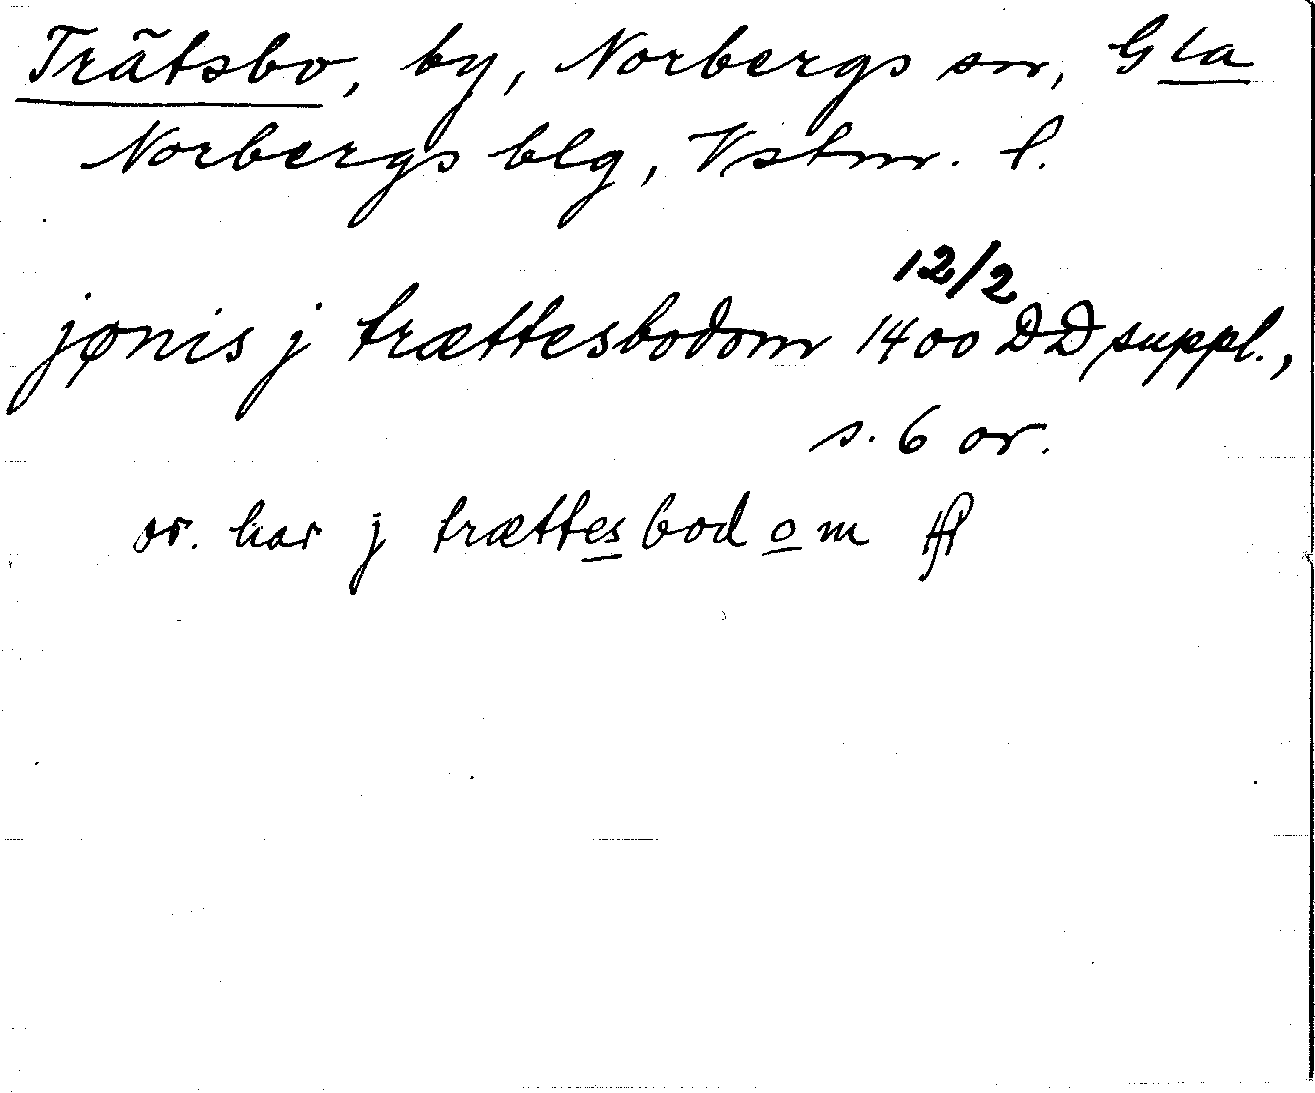 Trätsbo, by, Norbergs sn, Gla
Norbergs blg, Vstm. l.
12/2
jønis j trættesbodom 1400 DD suppl.,
s. 6 or.
or. har j trættesbodom